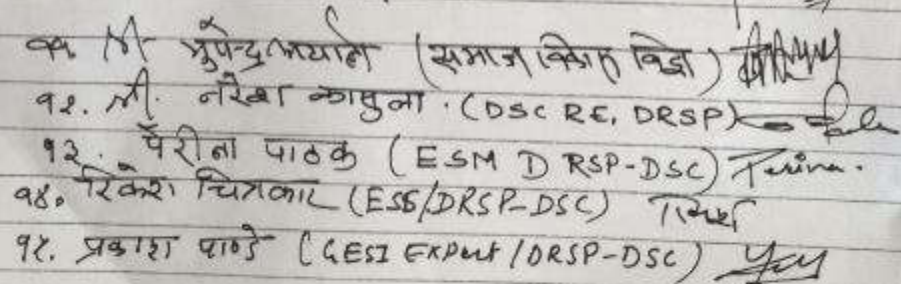 ११ श्री भुपेन्द्र न्यौपाने (समाज विकास विज्ञ)
१२. श्री. नरेश काफ्ले . (DSC RE, DRSP)
१३. पैरीना पाठक (ESM D RSP-DSC) Perina.
१४. रिकेश चित्रकार (ESS/DRSP-DSC)
१५. प्रकाश पाण्डे (GESI EXPert / DRSP-DSC)